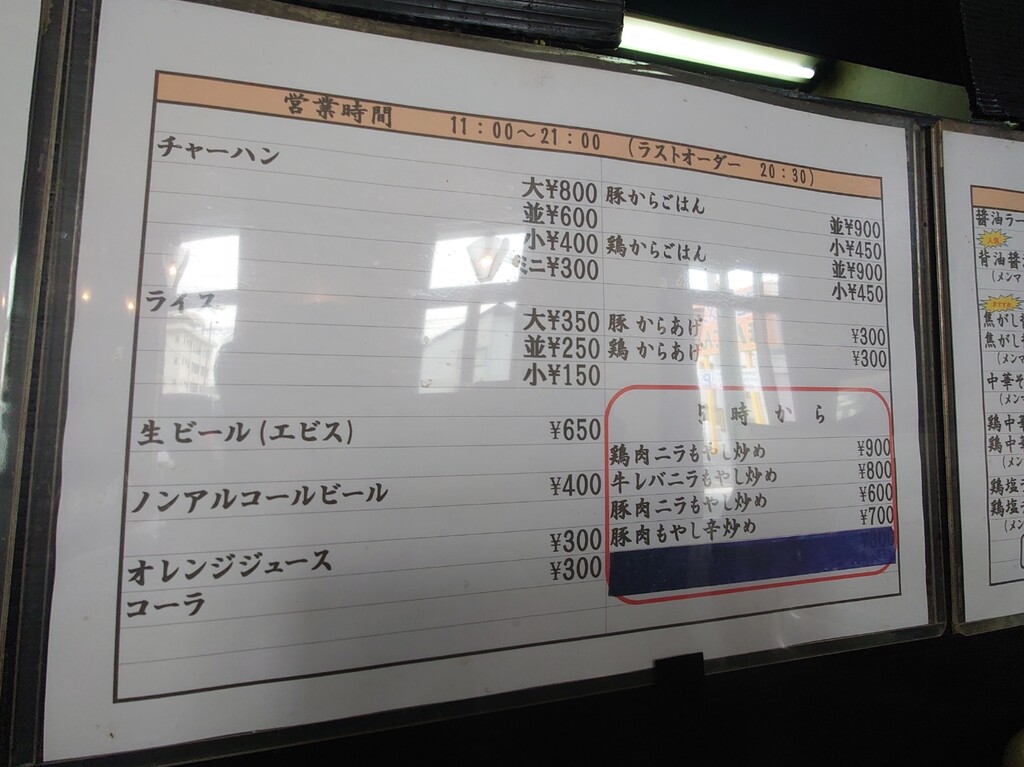 営業時間 11:00～21:00 (ラストオーダー 20:30)
チャーハン
大¥800
並¥600
小¥400
ミニ¥300
ライス
大¥350
並¥250
小¥150
生ビール(エビス) ¥650
ノンアルコールビール ¥400
オレンジジュース ¥300
コーラ ¥300
豚からごはん
並¥900
小¥450
鶏からごはん
並¥900
小¥450
豚からあげ ¥300
鶏からあげ ¥300
5時から
鶏肉ニラもやし炒め ¥900
牛レバニラもやし炒め ¥800
豚肉ニラもやし炒め ¥600
豚肉もやし辛炒め ¥700
醤油ラー
人気
背油醤
(メンマ
焦がし
焦がし
(メンマ
中華そ
(メン
鶏中華
鶏中
(メン
鶏塩
鶏塩
(メン